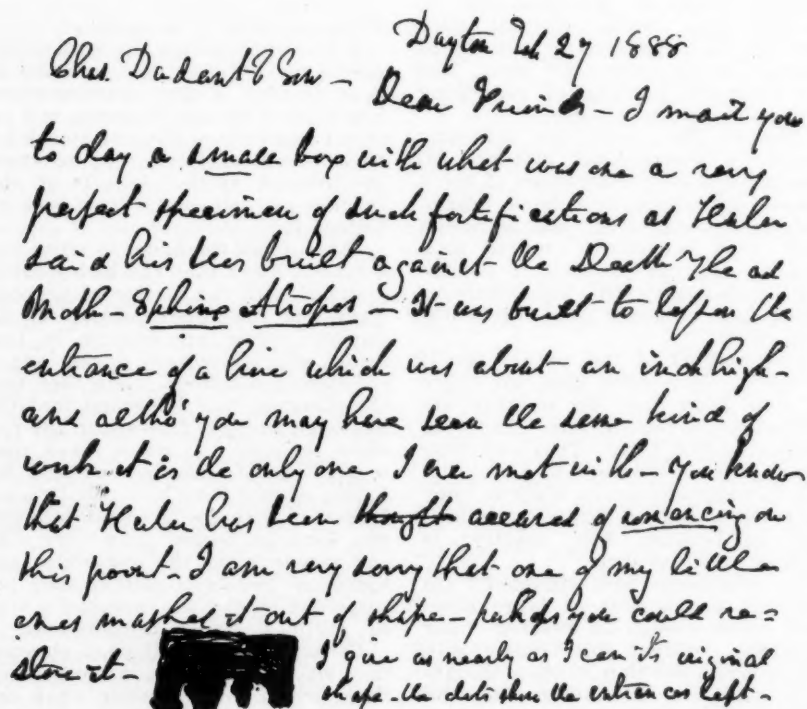 Dayton Feb 27 1888
Chas. Dadant & Son —
Dear Friends — I mail you
to day a small box with what was once a very
perfect specimen of such fortifications as Huber
said his bees built against the Death's head
Moth — Sphinx Atropos — It was built to lessen the
entrance of a hive which was about an inch high —
and altho' you may have seen the same kind of
work it is the only one I ever met with — you know
that Huber has been thought accused of romancing on
this point — I am very sorry that one of my little
ones mashed it out of shape — perhaps you could re=
store it —
I give as nearly as I can its original
shape — the dots show the entrances left —